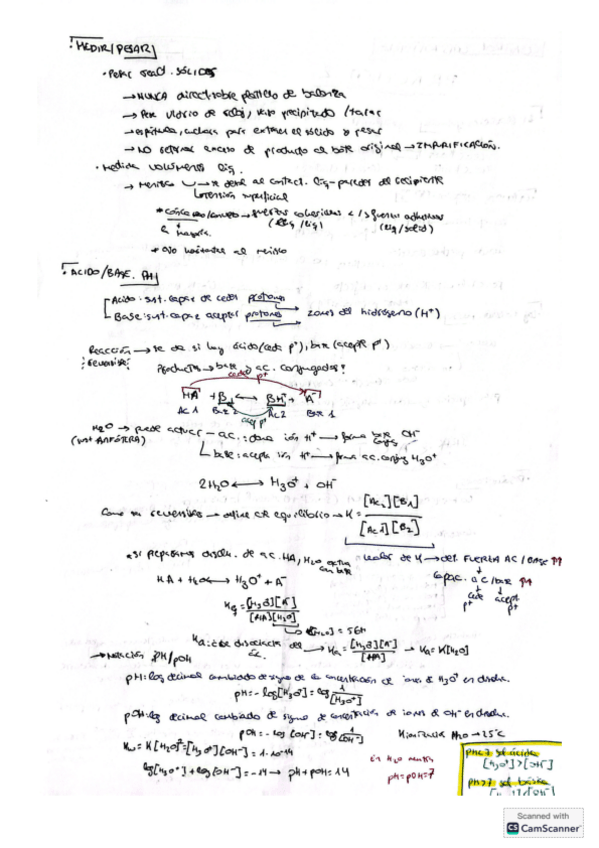 : MEDIR/PESAR
· Pesar react. sólidos
→ NUNCA direct. sobre platillo de balanza
→ Para vidrio de reloj, vaso precipitado / tarar
→ espátula, cuchara para extraer el sólido y pesar
→ NO retornar exceso de producto al bote original → IMPURIFICACIÓN.
· medida volúmenes líq.
→ Menisco → se debe al contact. líq-paredes del recipiente
tensión superficial
* cóncavo/convexo → fuerzas cohesivas < / > fuerzas adhesivas
(líq/líq) (líq/sólid)
mayoría.
* Ojo al menisco
: ACIDO/BASE. PH
Acido: sust. capaz de ceder protones
Base: sust. capaz aceptar protones → iones del hidrógeno (H⁺)
Reacción → se da si hay ácido (cede p⁺), base (acepte p⁺)
reversible: Productos → base y ac. conjugados!
cede p⁺
HA + B ⟷ BH⁺ + A⁻
Ac 1 Base 2 Ac 2 Base 1
acep p⁺
H₂O → puede actuar - ac.: dona ión H⁺ → forma base conjug OH⁻
(sust ANFÓTERA) base: acepta ión H⁺ → forma ac. conjug H₃O⁺
2H₂O ⟷ H₃O⁺ + OH⁻
Como son reversibles → define cte equilibrio → K = [Ac₂][B₁] / [Ac1][B₂]
* si preparamos disolu. de ac. HA, H₂O actúa com base
valor de K → det. FUERZA AC/BASE ↑↑
capac. AC/base ↑↑
cede p⁺ acept p⁺
HA + H₂O ⟷ H₃O⁺ + A⁻
K = [H₃O⁺][A⁻] / [HA][H₂O]
[H₂O] = 56M
Ka: cte disociación del ac. → Ka = [H₃O⁺][A⁻] / [HA] → Ka = K[H₂O]
→ Notación pH/pOH
pH: log decimal cambiado de signo de la concentración de iones de H₃O⁺ en disolu.
pH = -log[H₃O⁺] = log 1/[H₃O⁺]
pOH: log decimal cambiado de signo de concentración de iones de OH⁻ en disolu.
pOH = -log[OH⁻] = log 1/[OH⁻]
H₂O → 25°C
Kw = K[H₂O]² = [H₃O⁺][OH⁻] = 1·10⁻¹⁴
log[H₃O⁺] + log[OH⁻] = -14 → pH + pOH = 14
En H₂O neutra
pH = pOH = 7
pH<7 sol ácida
[H₃O⁺]>[OH⁻]
pH>7 sol básica
Scanned with
CS CamScanner